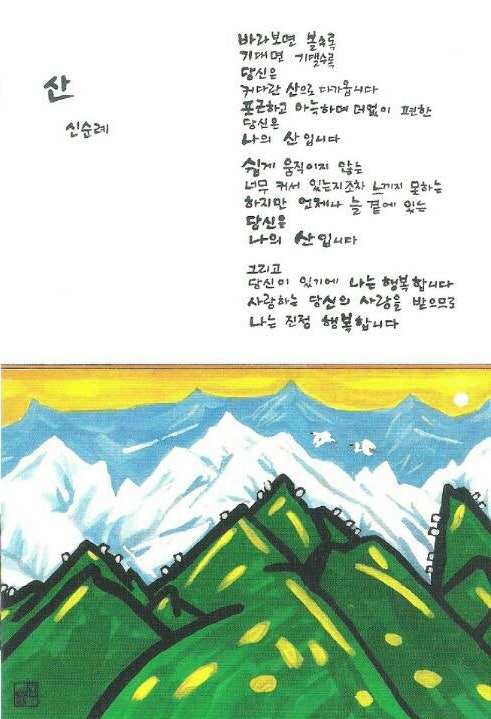 산
신순례
바라보면 볼수록
기대면 기댈수록
당신은
커다란 산으로 다가옵니다
포근하고 아늑하며 더없이 편한
당신은
나의 산입니다
쉽게 움직이지 않는
너무 커서 있는지조차 느끼지 못하는
하지만 언제나 늘 곁에 있는
당신은
나의 산입니다
그리고
당신이 있기에 나는 행복합니다
사랑하는 당신의 사랑을 받으므로
나는 진정 행복합니다